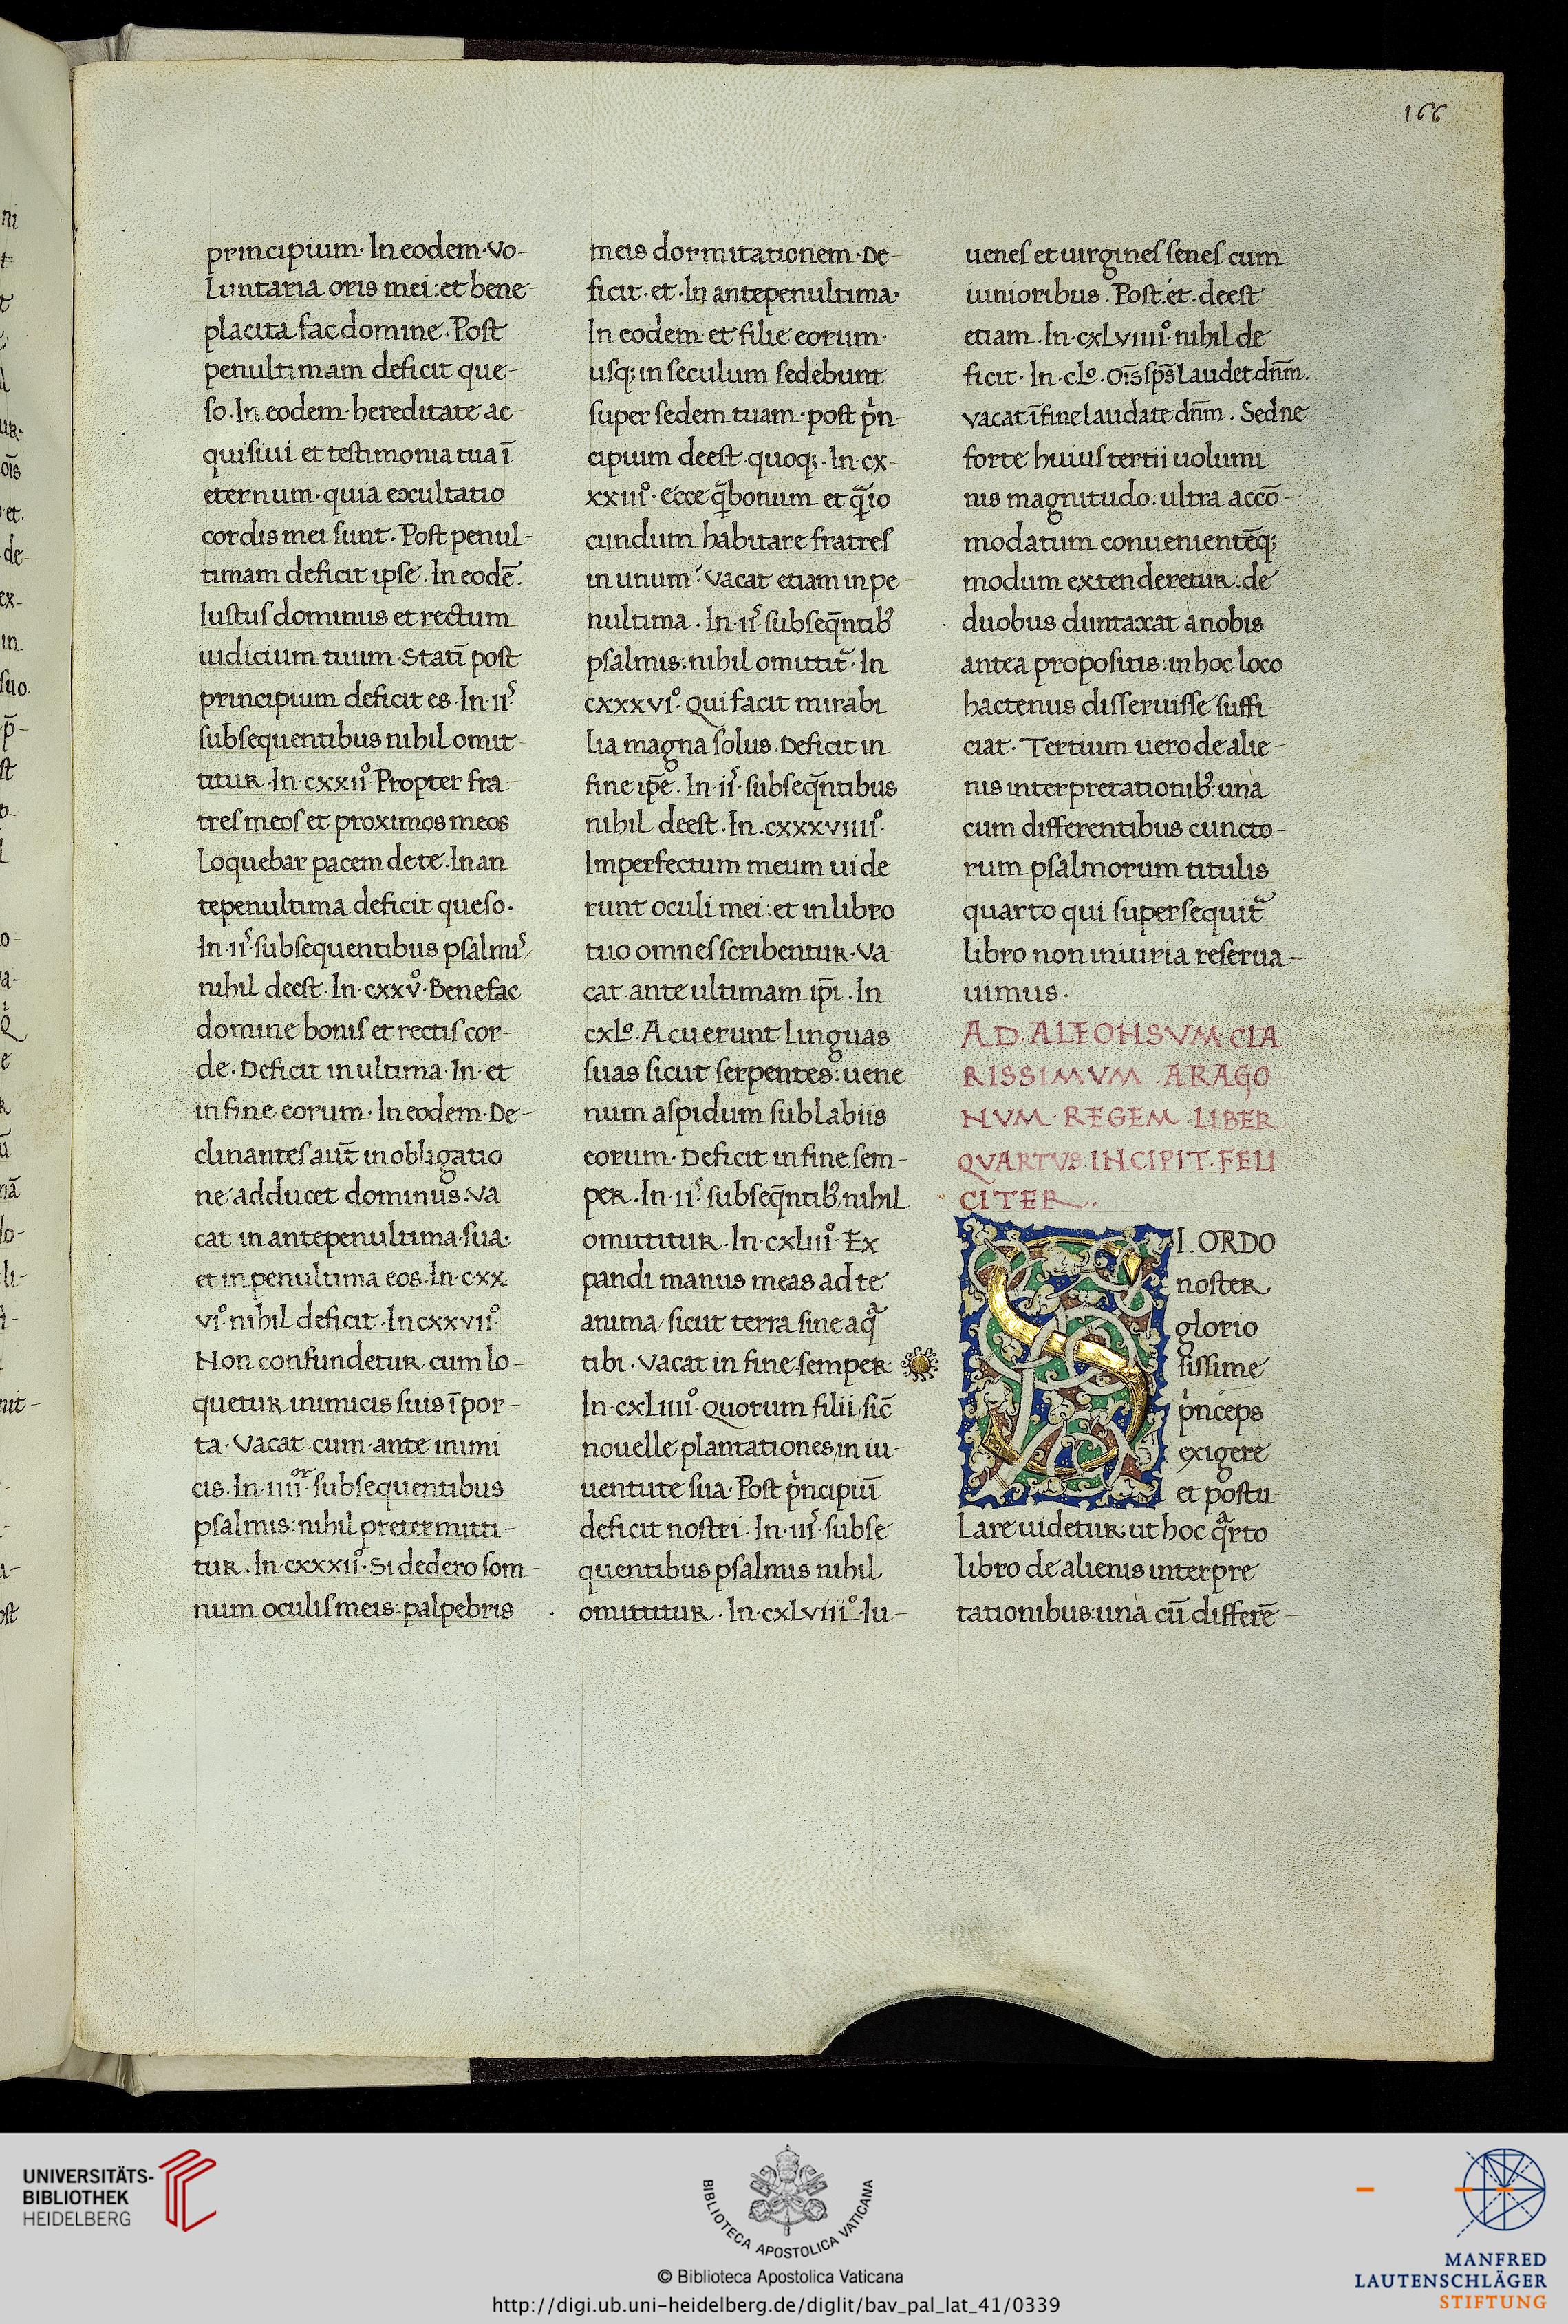 166
principium· In eodem· Vo-
luntaria oris mei: et bene-
placita fac domine. Post
penultimam deficit que-
so. In eodem· hereditate ac-
quisiui et testimonia tua ī
eternum· quia exultatio
cordis mei sunt. Post penul-
timam deficit ipse. In eodē.
Iustus dominus et rectum
iudicium tuum. Statī post
principium deficit es. In·iiˢ
subsequentibus nihil omit-
titur. In·cxxii°. Propter fra-
tres meos et proximos meos
loquebar pacem de te. In an
tepenultima deficit queso.
In·iiˢ subsequentibus psalmiˢ
nihil deest. In·cxxv°. Benefac
domine bonis et rectis cor-
de. Deficit in ultima· In· et
in fine eorum. In eodem· De-
clinantes aūt in obligatio
ne adducet dominus. Va
cat in antepenultima· sua·
et in penultima eos. In·cxx
vi° nihil deficit. In cxxvii°
Non confundetur cum lo-
quetur inimicis suis ī por-
ta. Vacat cum· ante inimi
cis. In·iiiiᵒʳ subsequentibus
psalmis: nihil pretermitti-
tur. In·cxxxii°. Si dedero som-
num oculis meis: palpebris
meis dormitationem. De-
ficit· et· In antepenultima·
In eodem· et filie eorum·
usq; in seculum sedebunt
super sedem tuam· post pⁱn-
cipium deest quoq;. In·cx-
xxiii°. Ecce qᵃ bonum et qᵃ io
cundum habitare fratres
in unum: Vacat etiam in pe
nultima. In·iiˢ subseq̄ntib᾽
psalmis: nihil omittitᵃ. In
cxxxvi°. Qui facit mirabi
lia magna solus. Deficit in
fine ip̄e. In·iiˢ· subseq̄ntibus
nihil deest. In·cxxxviiii°.
Imperfectum meum uide
runt oculi mei: et in libro
tuo omnes scribentur. Va-
cat ante ultimam ip̄i. In
cxl°. Acuerunt linguas
suas sicut serpentes: uene-
num aspidum sub labiis
eorum. Deficit in fine sem-
per. In·iiˢ subseq̄ntib᾽ nihil
omittitur. In·cxliii°. Ex
pandi manus meas ad te
anima sicut terra sine aqᵃ
tibi. Vacat in fine semper
In·cxliiii°. Quorum filii sic̄
nouelle plantationes in iu-
uentute sua. Post pⁱncipiū
deficit nostri. In·iiiˢ· subse
quentibus psalmis nihil
omittitur. In·cxlviii°. Iu-
uenes et uirgines senes cum
iunioribus. Post· et· deest
etiam. In·cxlviiii°. nihil de
ficit. In·cl°. Oīs sp̄s laudet dn̄m.
vacat ī fine laudate dn̄m. Sed ne
forte huius tertii uolumi
nis magnitudo: ultra accō-
modatum conuenientēq;
modum extenderetur: de
duobus duntaxat a nobis
antea propositis: in hoc loco
hactenus disseruisse suffi-
ciat. Tertium uero de alie-
nis interpretationib᾽: una
cum differentibus cuncto-
rum psalmorum titulis
quarto qui supersequitᵃ
libro non iniuria reserua-
uimus.
AD. ALFONSVM. CLA
RISSIMVM. ARAGO
NVM. REGEM. LIBER
QVARTVS. INCIPIT. FELI
CITER.
SI. ORDO
noster
glorio
sissime
pⁱnceps
exigere
et postu-
lare uidetur ut hoc qᵃrto
libro de alienis interpre
tationibus: una cū differē-
UNIVERSITÄTS-
BIBLIOTHEK
HEIDELBERG
BIBLIOTECA APOSTOLICA VATICANA
© Biblioteca Apostolica Vaticana
http://digi.ub.uni-heidelberg.de/diglit/bav_pal_lat_41/0339
MANFRED
LAUTENSCHLÄGER
STIFTUNG